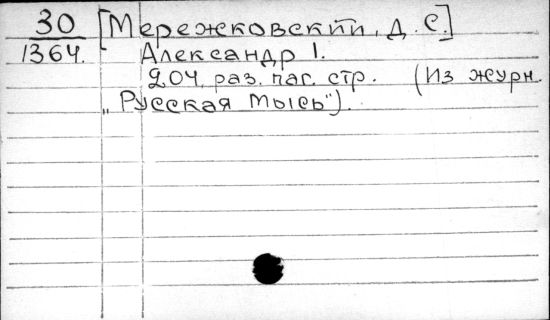 30 [Мережковский, Д. С.]
1364. Александр I.
204 раз. паг. стр. (Из журн.
„Русская Мысь").